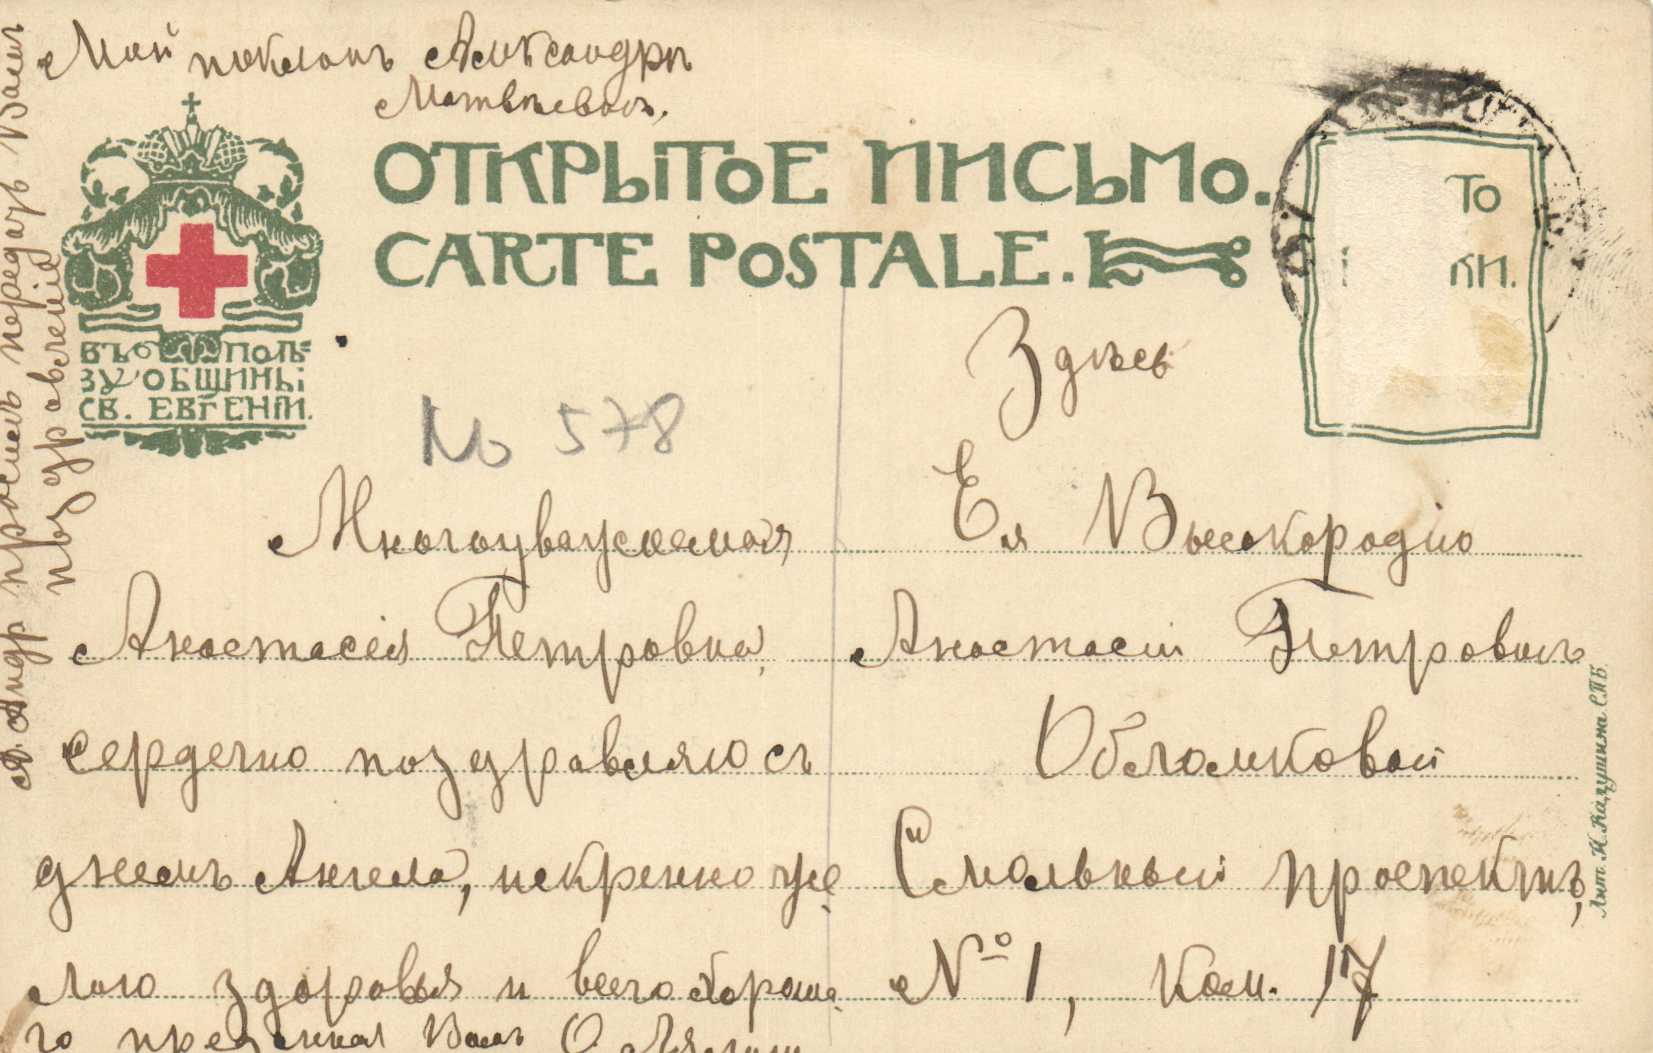 Мой поклонъ Александрѣ
Матвѣевнѣ.
ОТКРЫТОЕ ПИСЬМО.
CARTE POSTALE.
ВЪ ПОЛЬ=
ЗУ ОБЩИНЫ
СВ. ЕВГЕНІИ.
ТО
КИ.
№ 578
Многоуважаемая
Анастасія Петровна,
сердечно поздравляю съ
днемъ Ангела, искренно же
лаю здоровья и всего хороша
го преданная Вамъ О.
Андр проситъ передать Вамъ
поздравленія
Здѣсь
Ея Высокородію
Анастасіи Петровнѣ
Обломковой
Смольный проспектъ,
№ 1, ком. 17
Лит. Н. Кадушина СПБ